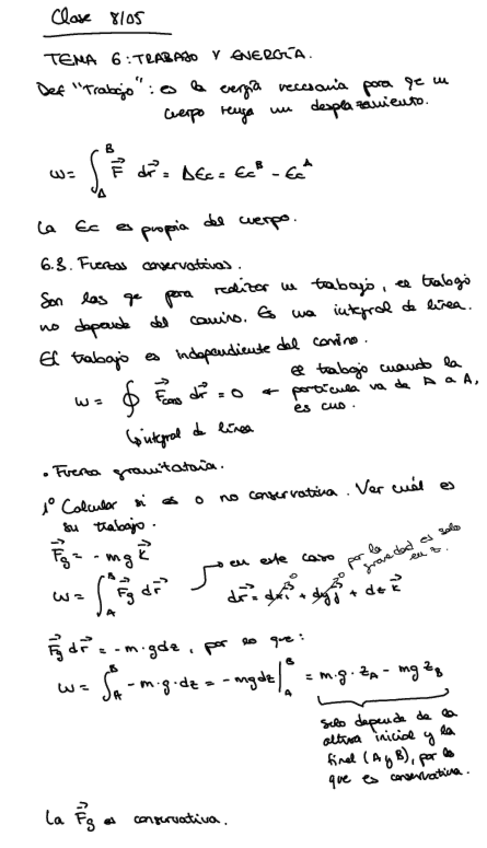 Clase 8/05
TEMA 6: TRABAJO Y ENERGÍA.
Def "Trabajo": es la energía necesaria para qe un
cuerpo tenga un desplazamiento.
w = ∫_A^B F⃗ dr⃗ = ΔEc = Ec^B - Ec^A
La Ec es propia del cuerpo.
6.3. Fuerzas conservativas.
Son las qe para realizar un trabajo, el trabajo
no depende del camino. Es una integral de línea.
El trabajo es independiente del camino.
w = ∮ F⃗cons dr⃗ = 0 ← el trabajo cuando la
partícula va de A a A,
es cero.
↳ integral de línea
• Fuerza gravitatoria.
1º Calcular si es o no conservativa. Ver cuál es
su trabajo.
F⃗g = - mg k⃗
w = ∫_A^B F⃗g dr⃗
→ en este caso por la
gravedad es solo
en z.
dr⃗ = dx i⃗^0 + dy j⃗^0 + dz k⃗
F⃗g dr⃗ = -m·g dz, por lo que:
w = ∫_A^B -m·g·dz = -mgdz |_A^B = m·g·z_A - mg z_B
solo depende de la
altura inicial y la
final (A y B), por lo
que es conservativa.
La F⃗g es conservativa.